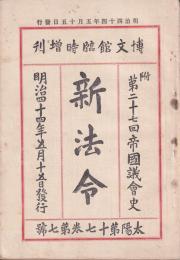 明治四十四年五月十五日發行
博文館臨時增刊
附 第二十七回帝國議會史
新法令
明治四十四年五月十五日發行
太陽第十七卷第七號